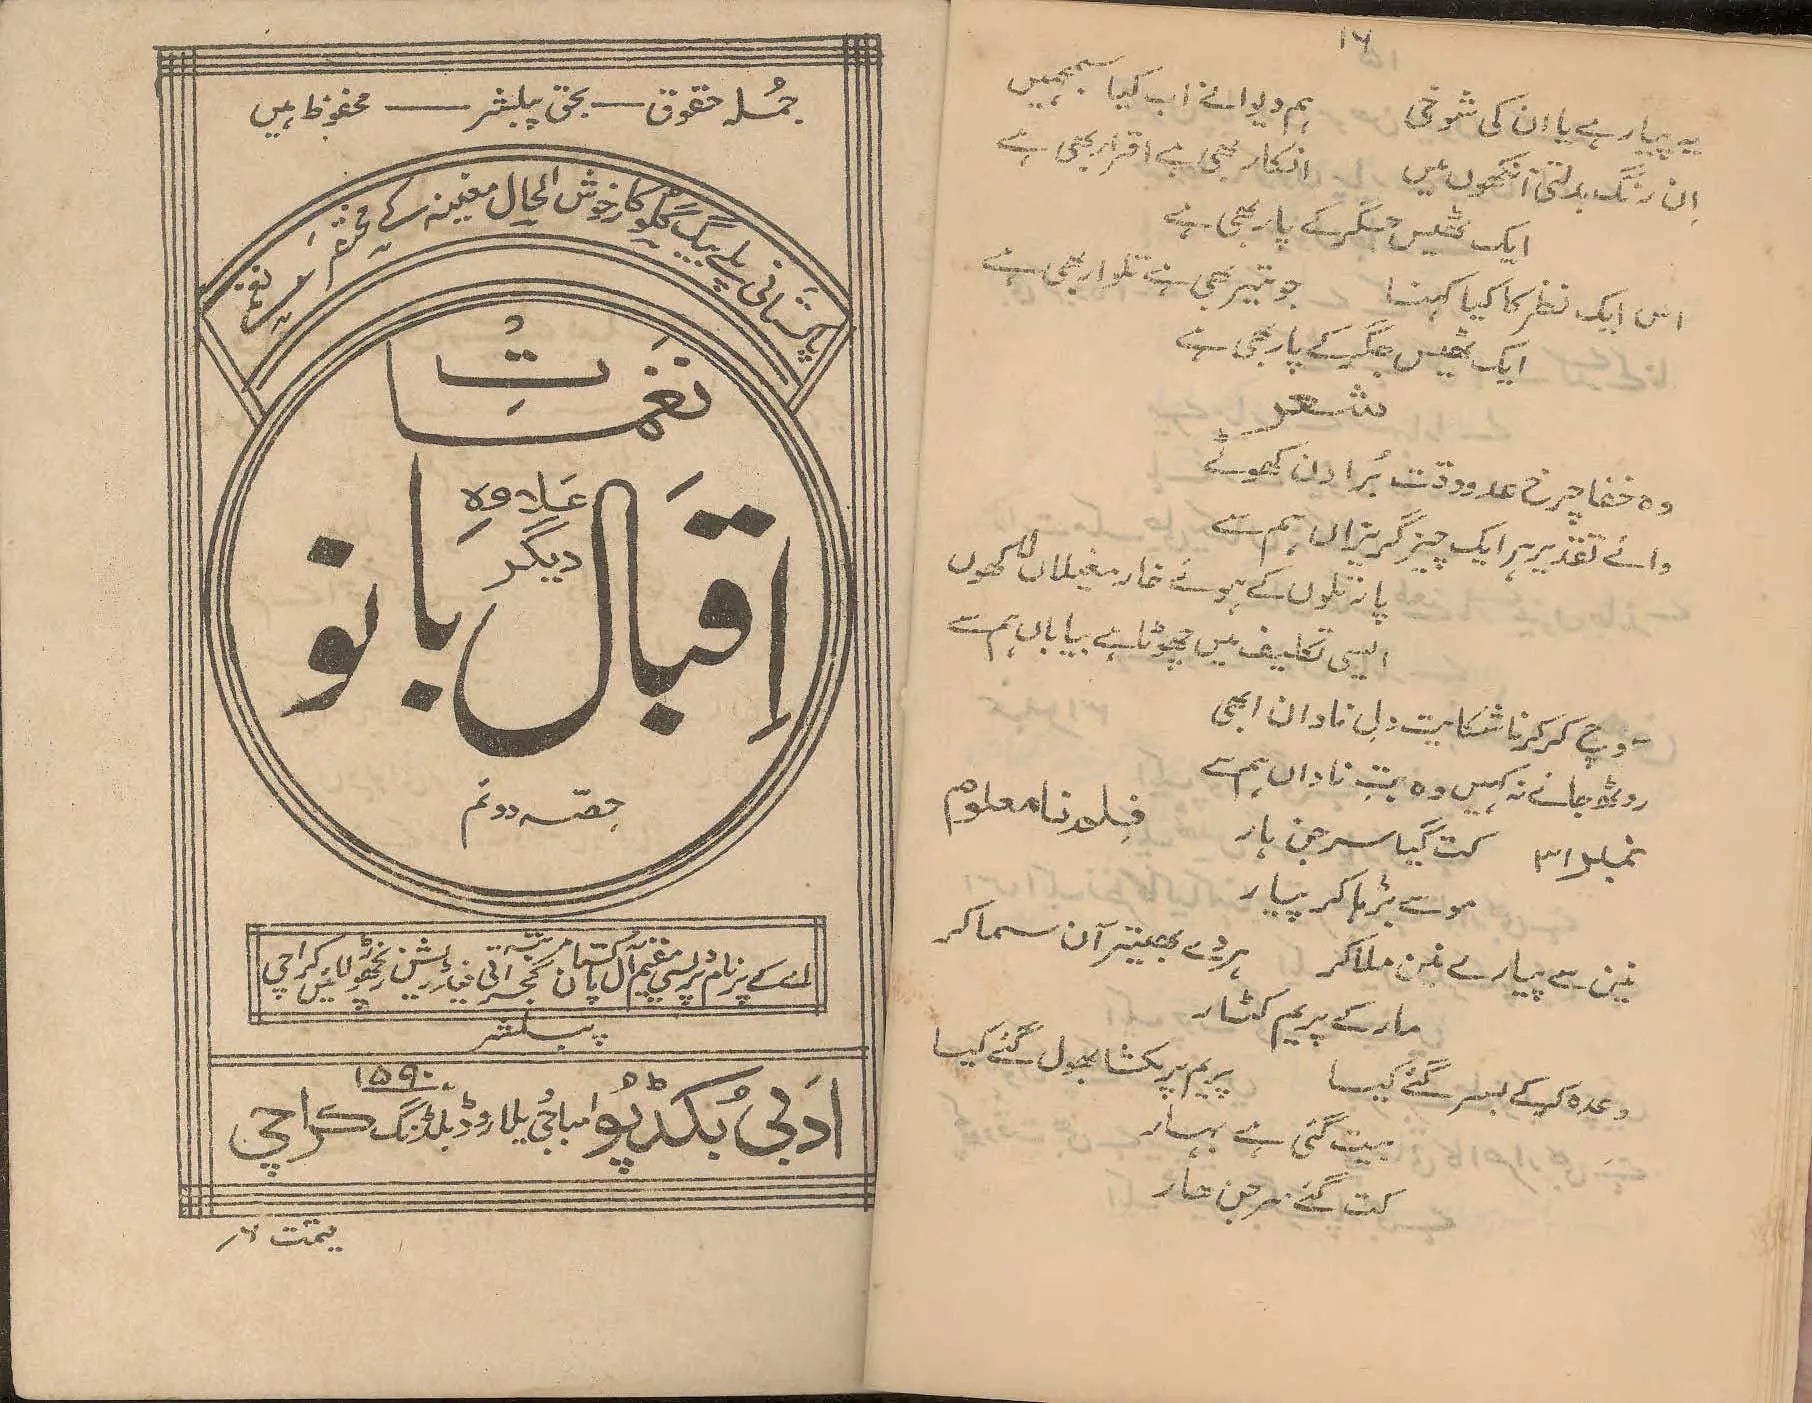 جملہ حقوق — بحق پبلشر — محفوظ ہیں
پاکستانی پلے بیگ گلوکار خوش الحال مغنیہ کے
نغمات
اقبال بانو
علاوہ
دیگر
حصہ دوئم
پبلشر
ادبی بکڈپو ۱۵۹۰ امباجی یلا روڈ بلڈنگ کراچی
قیمت ۶ر
۱۶
یہ پیار ہے یا ان کی شوخی ہم دیوانے اب کیا سمجھیں
اِن رنگ بدلتی آنکھوں میں انکار بھی ہے اقرار بھی ہے
ایک ٹھیس جگر کے پار بھی ہے
اس ایک نظر کا کیا کہنا جو تیر بھی ہے تلوار بھی ہے
ایک ٹھیس جگر کے پار بھی ہے
شعر
وہ خفا چرخ عدو وقت بُرا دن کھوٹے
وائے تقدیر ہر ایک چیز گریزاں ہم سے
پار تلوں کے ہوئے خار مغیلاں لاکھوں
ایسی تکلیف میں چھوٹا ہے بیاباں ہم سے
سوچ کر کرنا شکایت دلِ نادان ابھی
روٹھ جائے نہ کہیں وہ بتِ ناداں ہم سے
نمبر ۳۱ کت گیا سرجن ہار فلم نامعلوم
موسے بڑہا کر پیار
نین سے پیارے نین ملا کر ہردے بھیتر آن سما کر
مار کے پریم کٹار
وعدہ کرکے بسر گئے کیسا پریم پریکشا بھول گئے کیسا
بیت گئی ہے بہار
کت گئے سرجن ہار